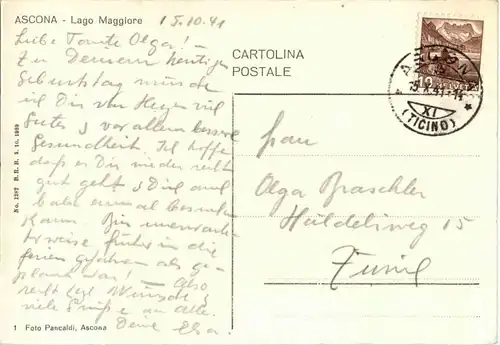 ASCONA - Lago Maggiore
15.10.41
Liebe Tante Olga! —
Zu Deinem heutigen
Geburtstag wünsche
ich Dir von Herzen viel
Gutes & vor allem bessere
Gesundheit. Ich hoffe
dass es Dir wieder recht
gut geht & Dich auch
bald einmal besuchen
kann. Bin unerwarte-
terweise früher in die
Ferien gefahren als ge-
plant war! — Also
recht herzl. Wünsche &
viele Grüsse an alle.
Deine Elsa.
CARTOLINA
POSTALE
ASCONA
15.X.41.-14
XI
(TICINO)
Frau
Olga Braschler
Huldeliweg 15
Zürich
No. 1287 B.R.B. 3. 10. 1939
1 Foto Pancaldi, Ascona